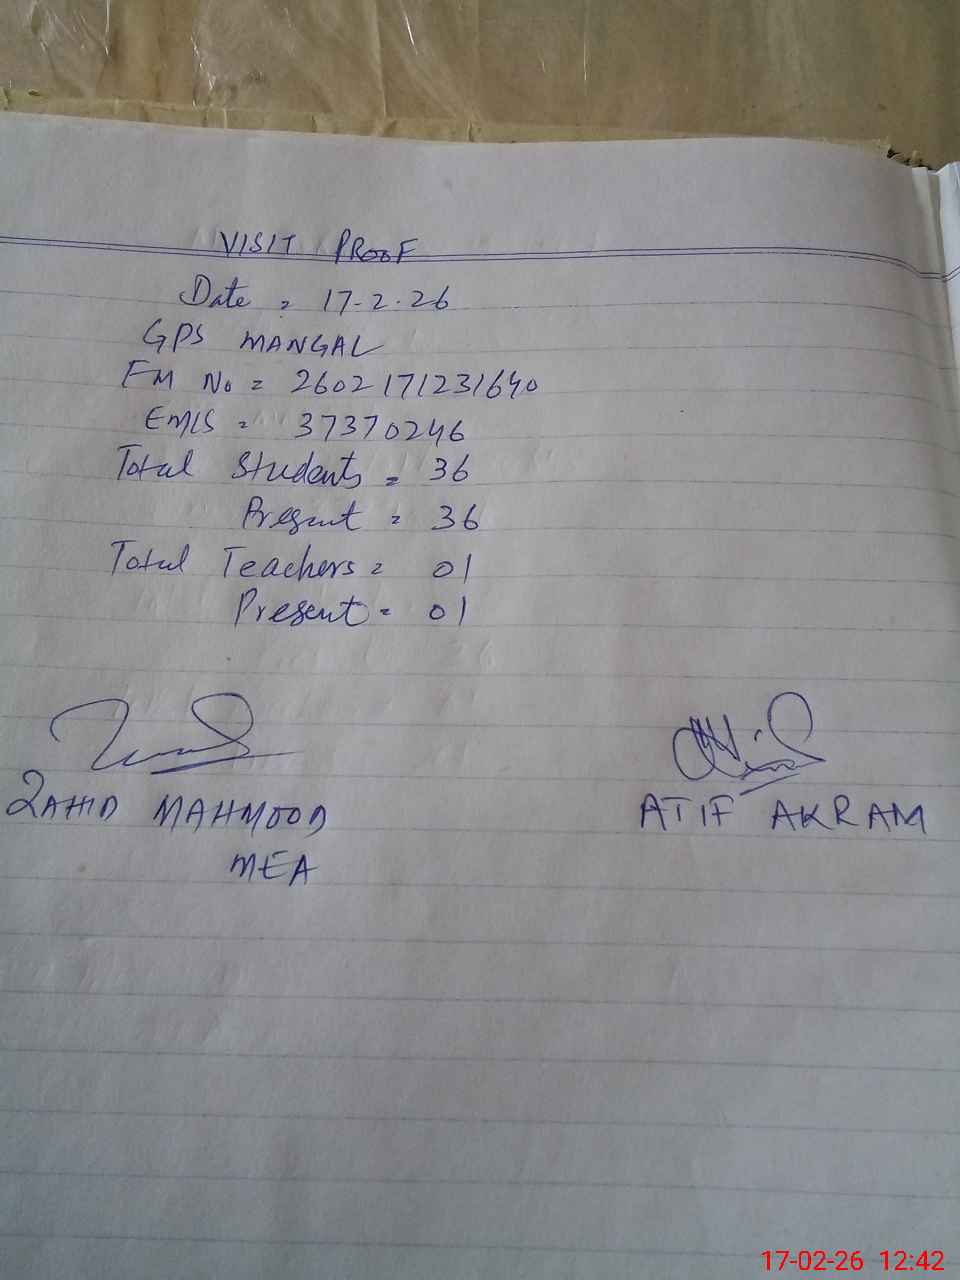 VISIT PROOF
Date = 17-2-26
GPS MANGAL
FM No = 2602171231640
EMIS = 37370246
Total Students = 36
Present = 36
Total Teachers = 01
Present = 01
ZAHID MAHMOOD
MEA
ATIF AKRAM
17-02-26 12:42